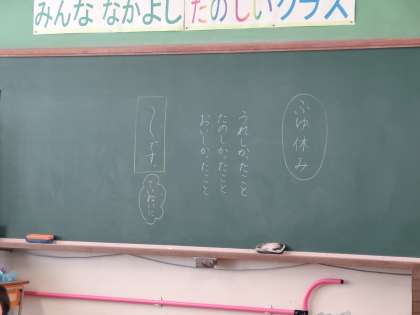 みんななかよし たのしいクラス
ふゆ休み
うれしかったこと
たのしかったこと
おいしかったこと
〜です。
ていねいに